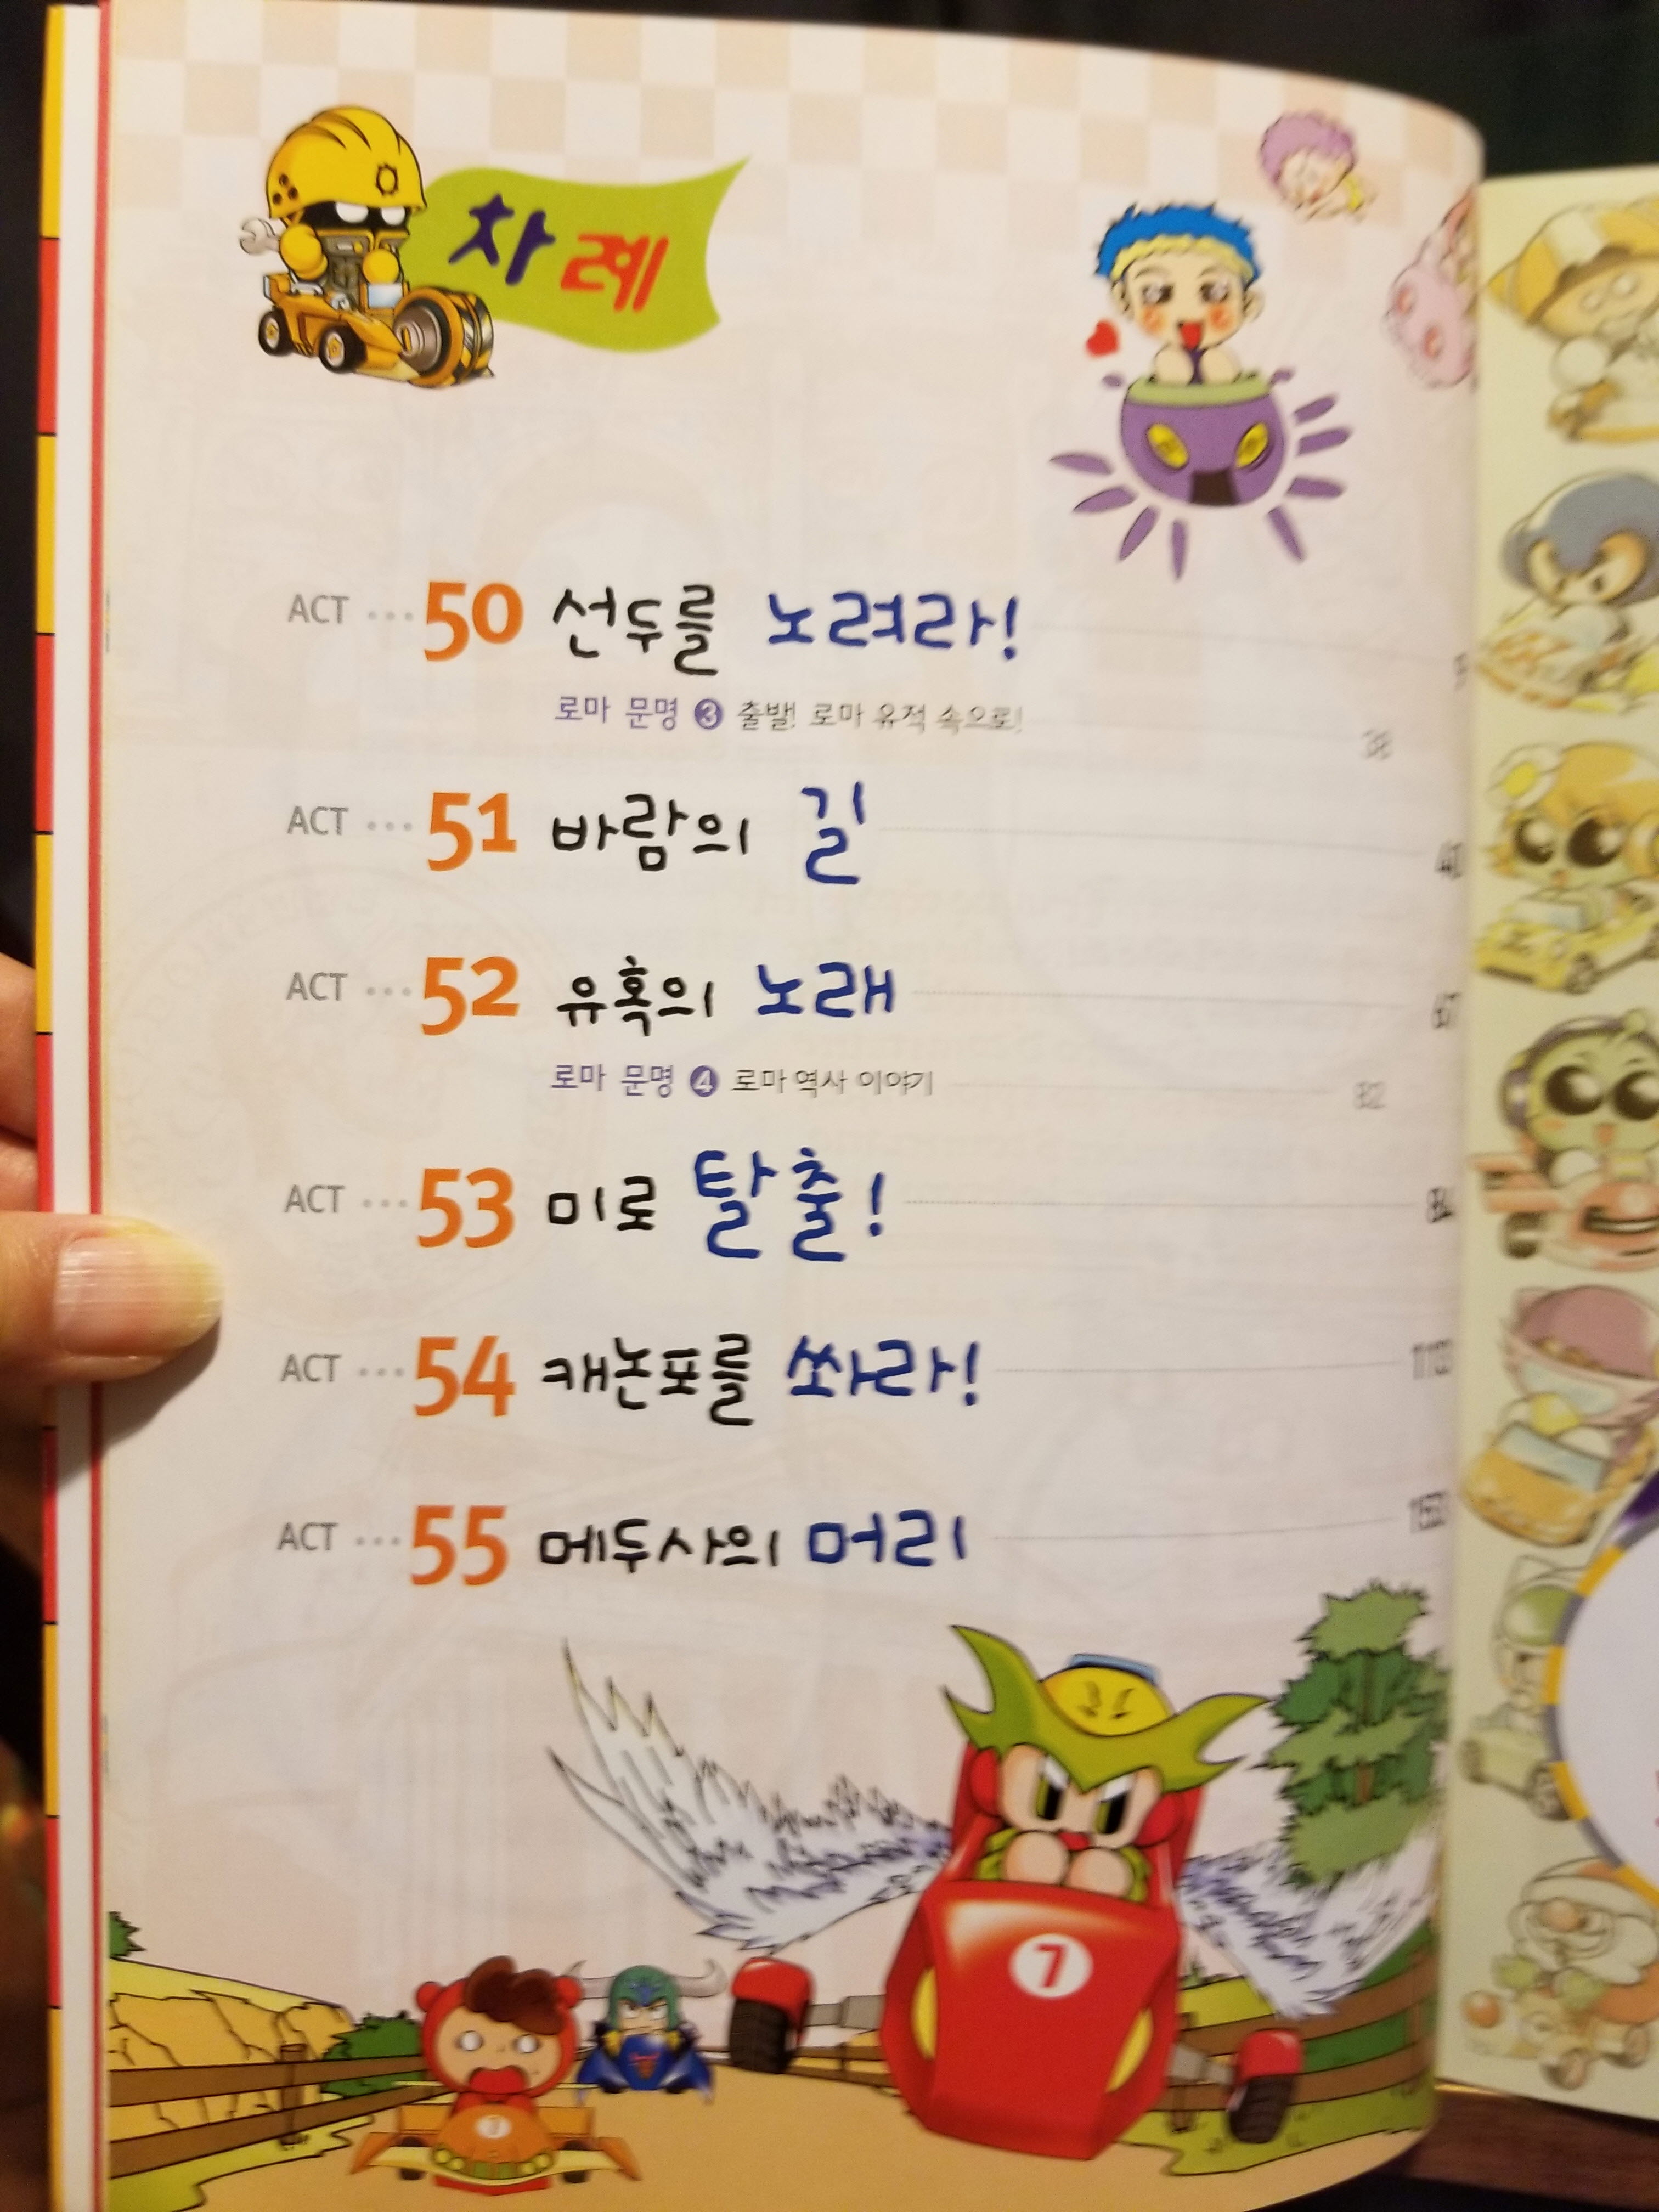 차례
ACT ··· 50 선두를 노려라!
로마 문명 ❸ 출발! 로마 유적 속으로! 38
ACT ··· 51 바람의 길
ACT ··· 52 유혹의 노래 67
로마 문명 ❹ 로마 역사 이야기 82
ACT ··· 53 미로 탈출! 84
ACT ··· 54 캐논포를 쏴라!
ACT ··· 55 메두사의 머리
7
7